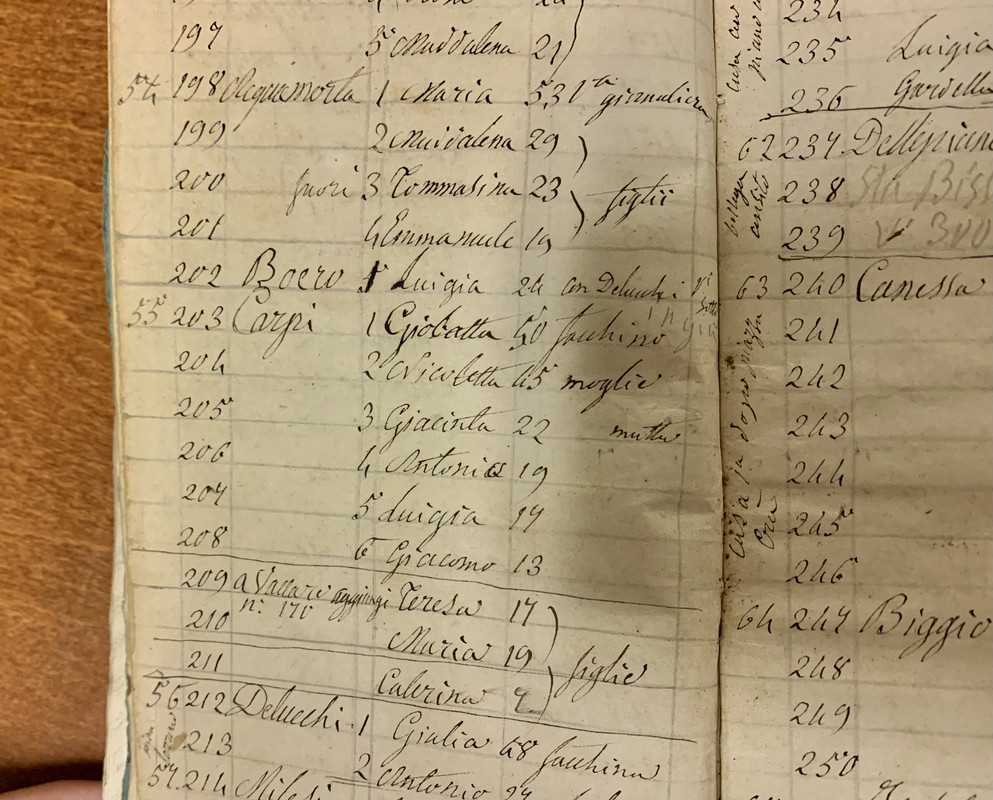 197 5 Maddalena 21
54 198 Acquamorta 1 Maria 53 giornaliera
199 2 Maddalena 29
200 fuori 3 Tommasina 23 figlii
201 4 Emmanuele 19
202 Boero 1 Luigia 24 con Delucchi
55 203 Carpi 1 Giobatta 50 facchino
204 2 Nicoletta 45 moglie
205 3 Giacinta 22 mutta
206 4 Antonia 19
207 5 Luigia 17
208 6 Giacomo 13
209 a Vallari aggiungi Teresa 17
n.º 170
210 Maria 19 figlie
211 Caterina
56 212 Delucchi 1 Giulia 48 facchina
213 2 Antonio 24
57 214 Milesi
234
235 Luigia
236 Gardella
62 237 Dellepiane
238
239
63 240 Canessa
241
242
243
244
245
246
64 247 Biggio
248
249
250